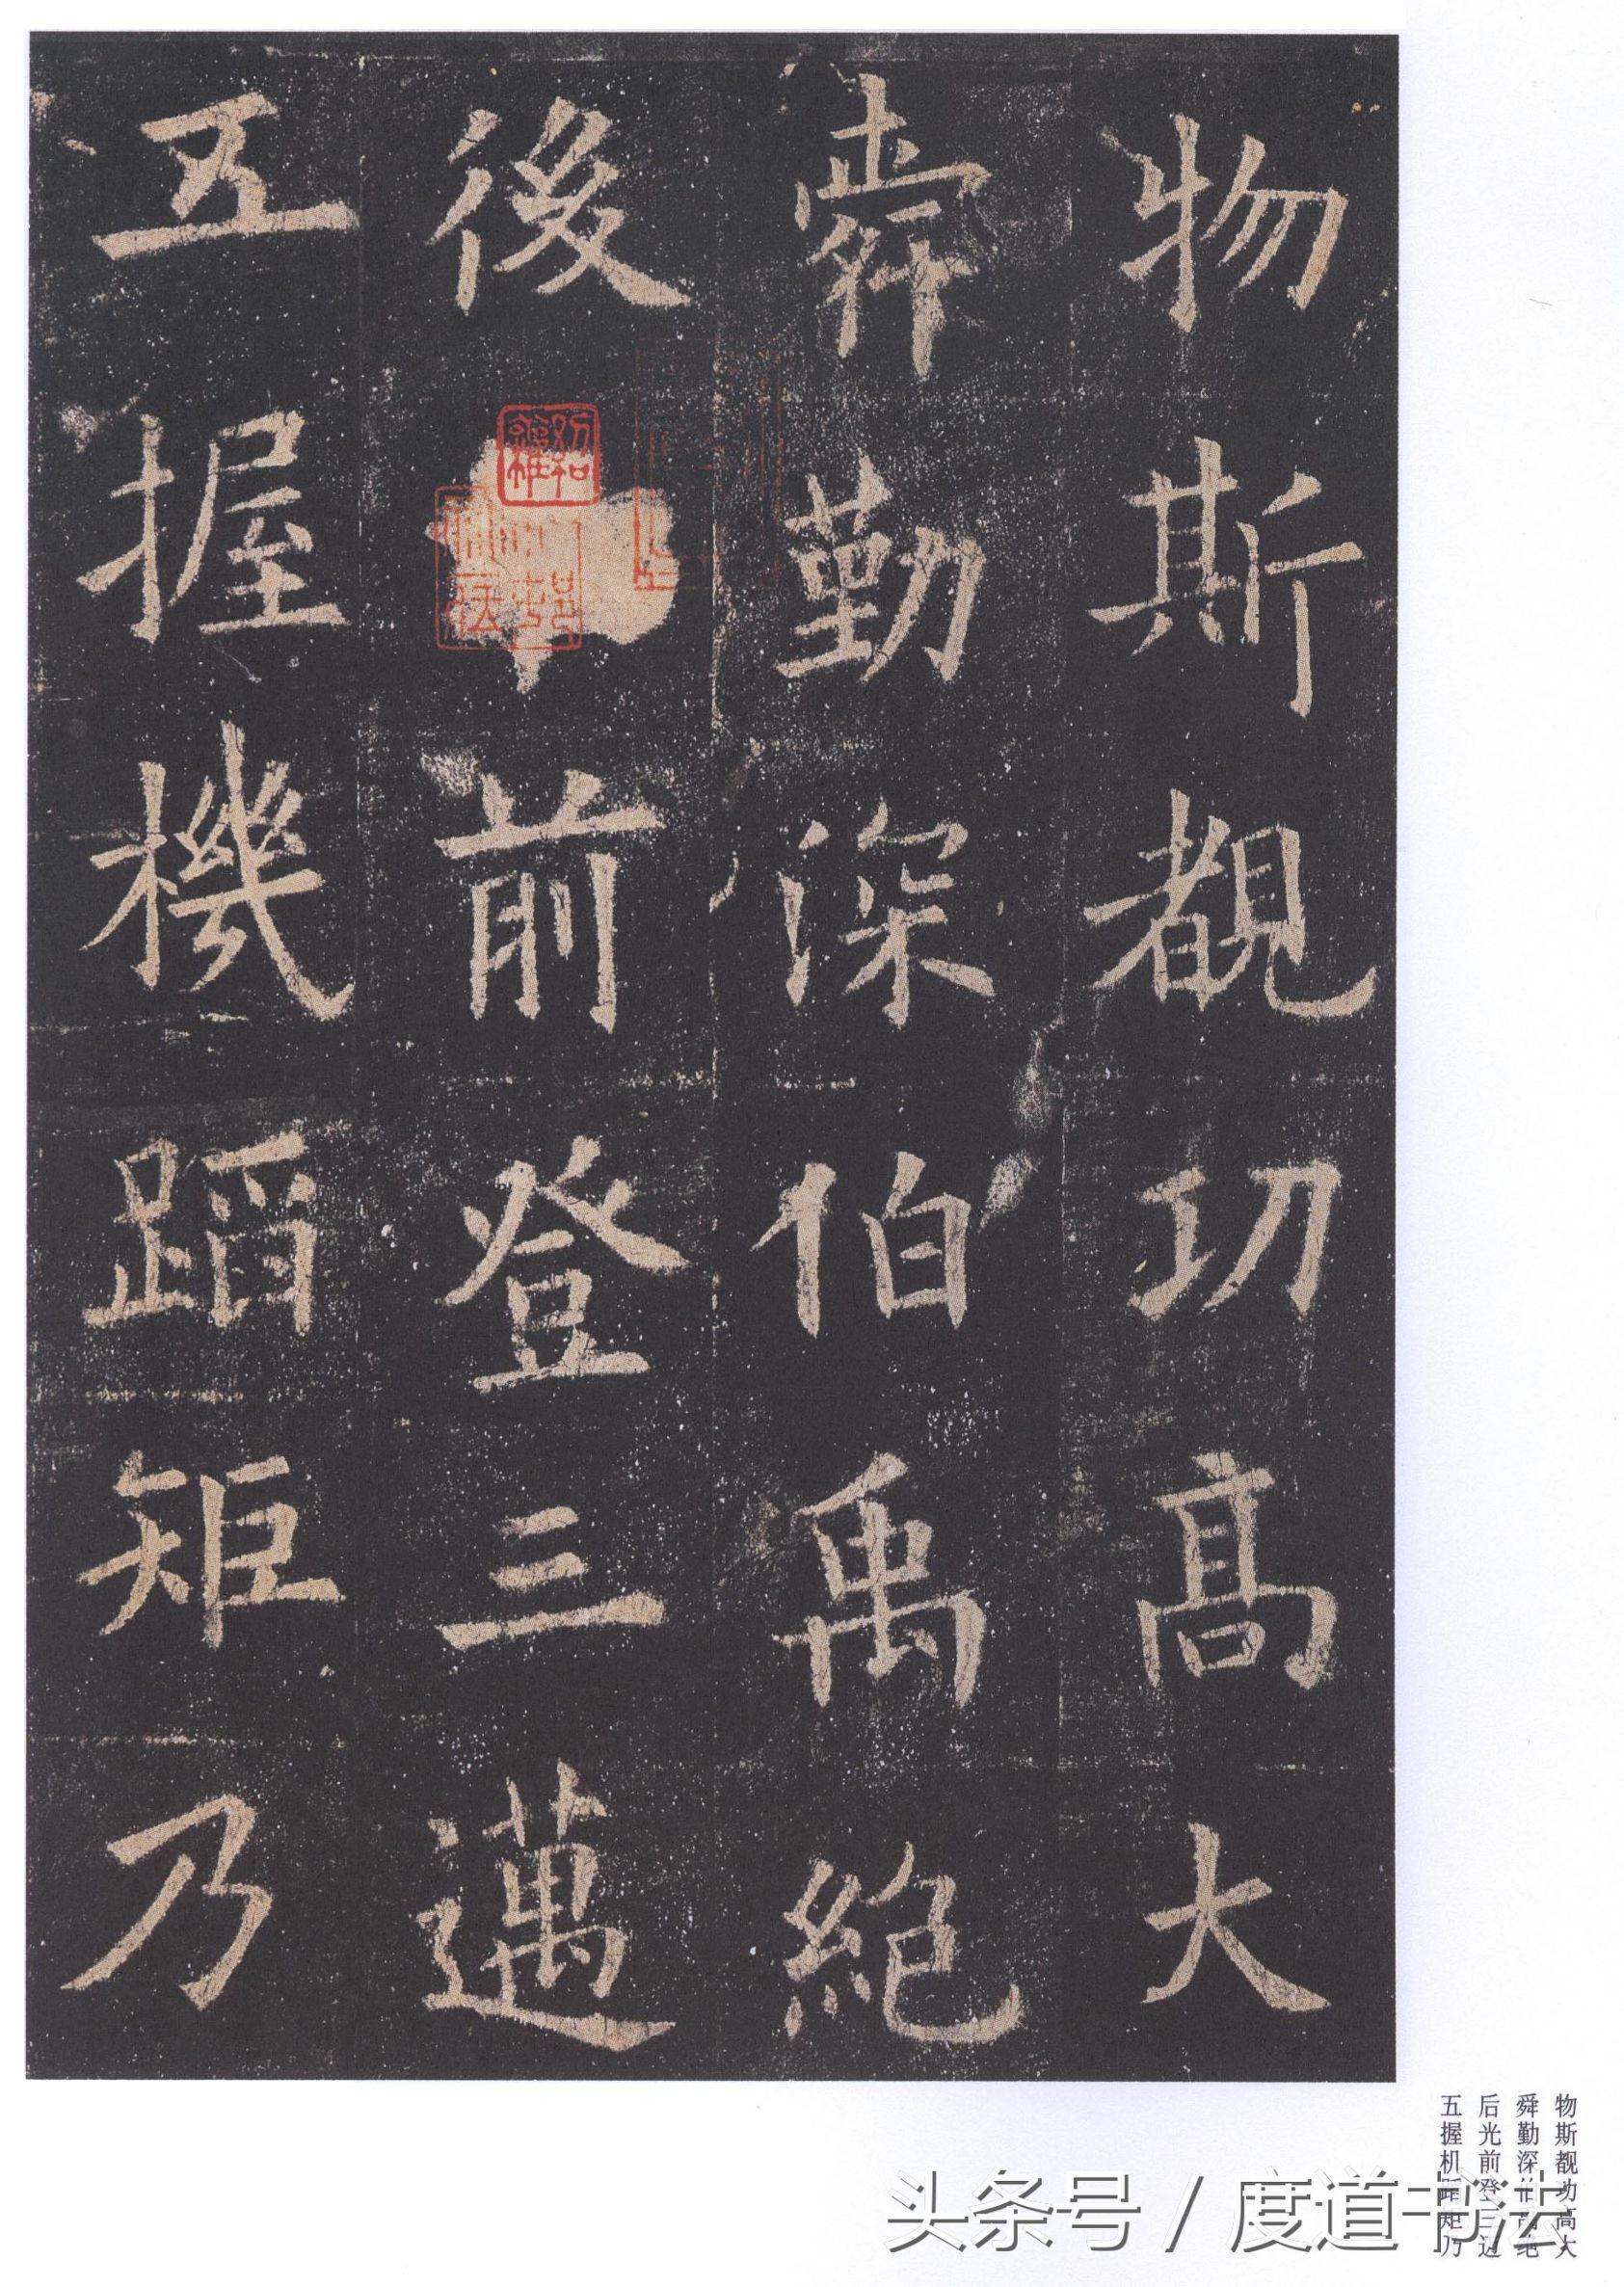 物斯覩功高大
舜勤深伯禹絶
後前登三邁
五握機蹈矩乃
物斯覩功高大
舜勤深伯禹绝
后光前登三迈
五握机蹈矩乃
头条号 / 度道书法